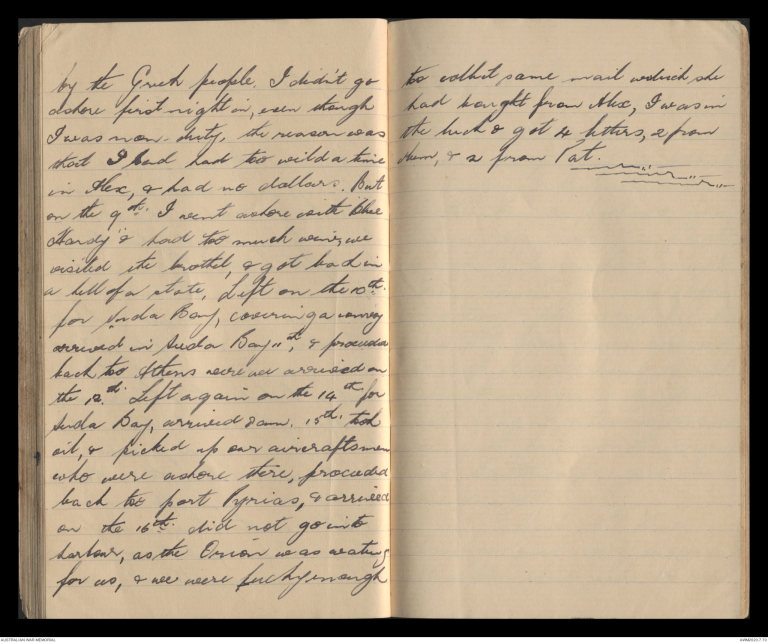 by the Greek people. I didn't go
ashore first night in, even though
I was non-duty, the reason was
that I had had too wild a time
in Alex, & had no dollars. But
on the 9th. I went ashore with "Blue
Hardy" & had too much wine, we
visited the brothel, & got back in
a hell of a state, Left on the 10th.
for Suda Bay, covering a convoy
arrived in Suda Bay 11th, & proceeded
back too Athens were we arrived on
the 12th. Left again on the 14th for
Suda Bay, arrived 8am. 15th. took
oil, & picked up our aircraftsmen
who were ashore there, proceeded
back too port Pyrias, & arrived
on the 16th. did not go into
harbour, as the Orion was waiting
for us, & we were lucky enough
too collect some mail which she
had bought from Alex, I was in
the luck & got 4 letters, 2 from
Mum, & 2 from Pat.
AUSTRALIAN WAR MEMORIAL